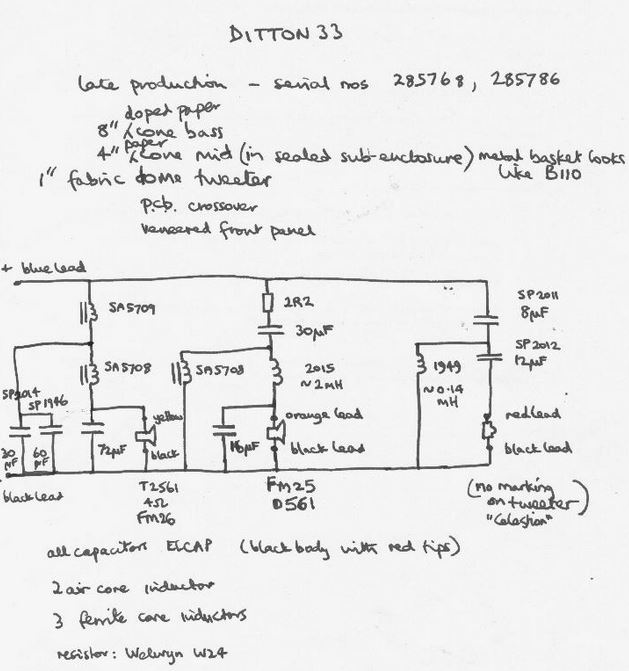 DITTON 33
late production - serial nos 285768, 285786
doped paper
8" cone bass
paper
4" cone mid (in sealed sub-enclosure) metal basket looks
like B110
1" fabric dome tweeter
p.c.b. crossover
veneered front panel
+ blue lead
SA5709
2R2
30µF
SP2011
8µF
SP2012
12µF
SA5708
SA5708
2015
~2MH
1949
~0.14
MH
SP2014
SP1946
30
µF
60
µF
72µF
yellow
black
16µF
orange lead
black lead
red lead
black lead
black lead
T2561
4Ω
FM26
FM25
D561
(no marking
on tweeter)
"Celestion"
all capacitors ELCAP (black body with red tips)
2 air core inductor
3 ferrite core inductors
resistor: Welwyn W24